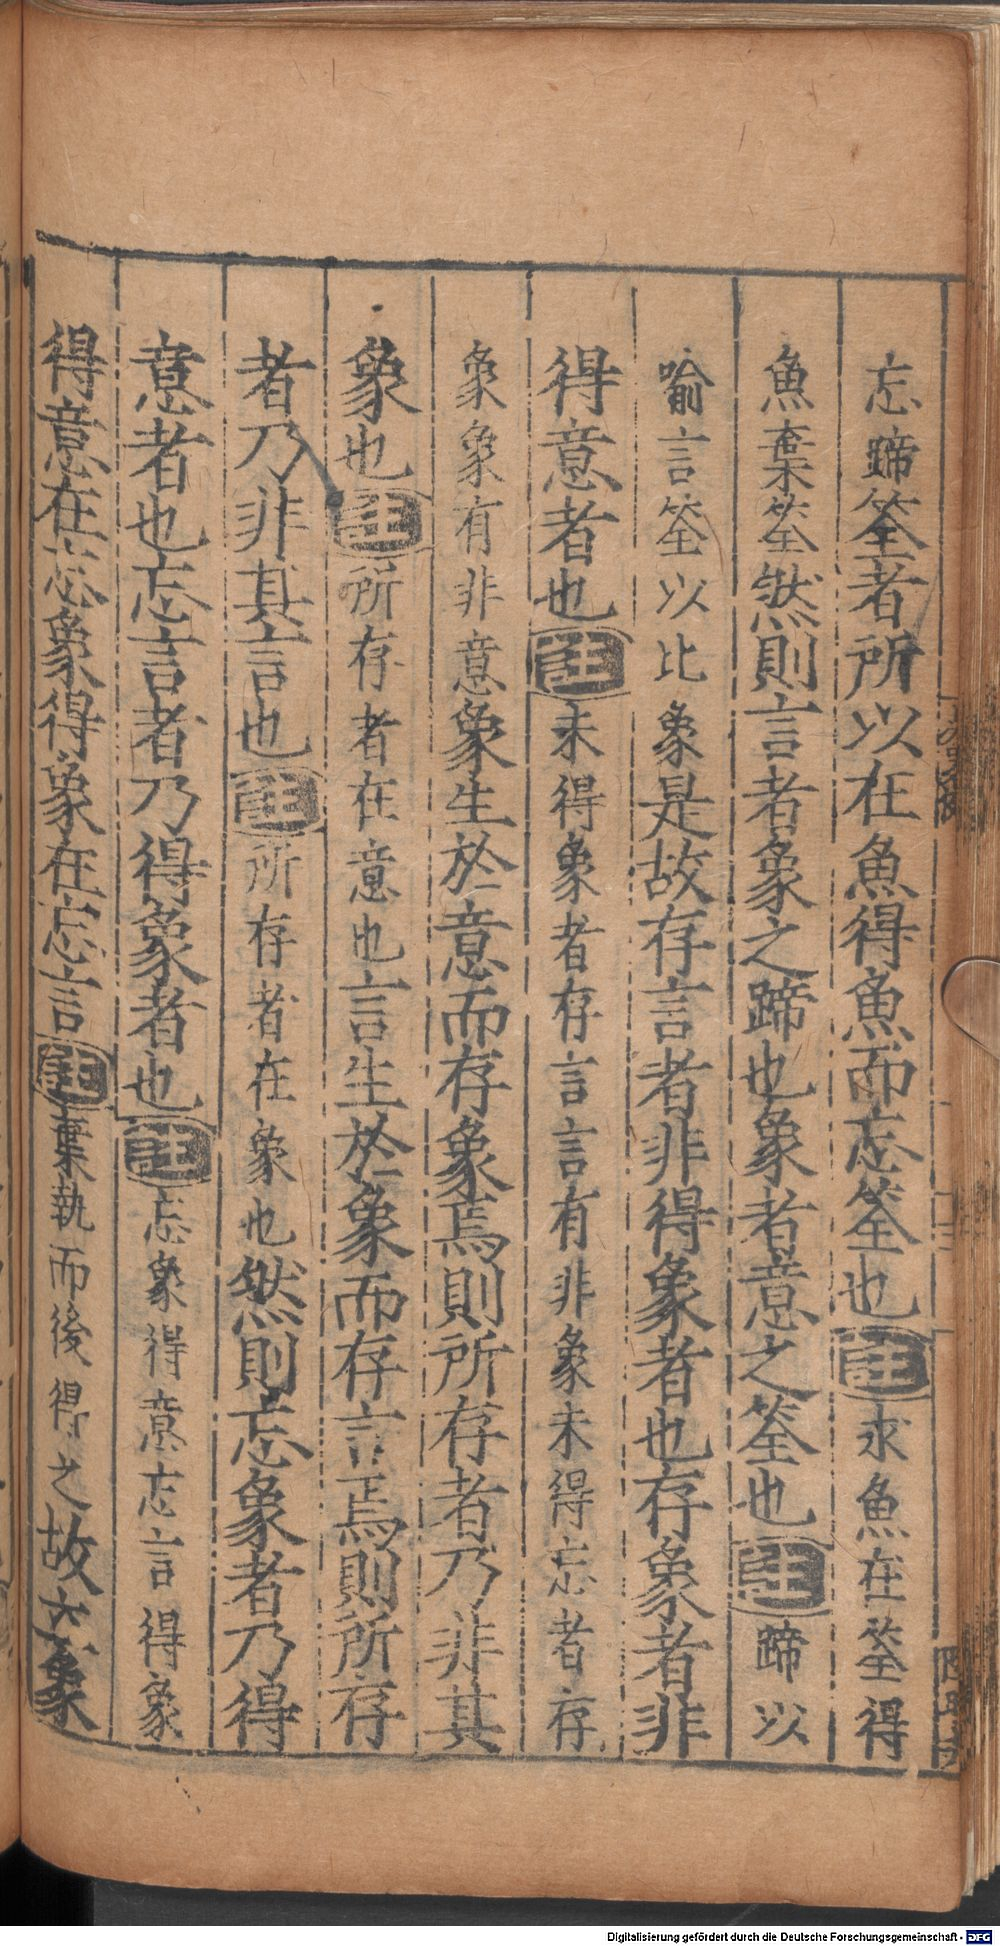 忘蹄筌者所以在魚得魚而忘筌也註求魚在筌得
魚棄筌然則言者象之蹄也象者意之筌也註蹄以
喻言筌以比象是故存言者非得象者也存象者非
得意者也註未得象者存言言有非象未得忘者存
象象有非意象生於意而存象焉則所存者乃非其
象也註所存者在意也言生於象而存言焉則所存
者乃非其言也註所存者在象也然則忘象者乃得
意者也忘言者乃得象者也註忘象得意忘言得象
得意在忘象得象在忘言註棄執而後得之故立象
Digitalisierung gefördert durch die Deutsche Forschungsgemeinschaft - DFG